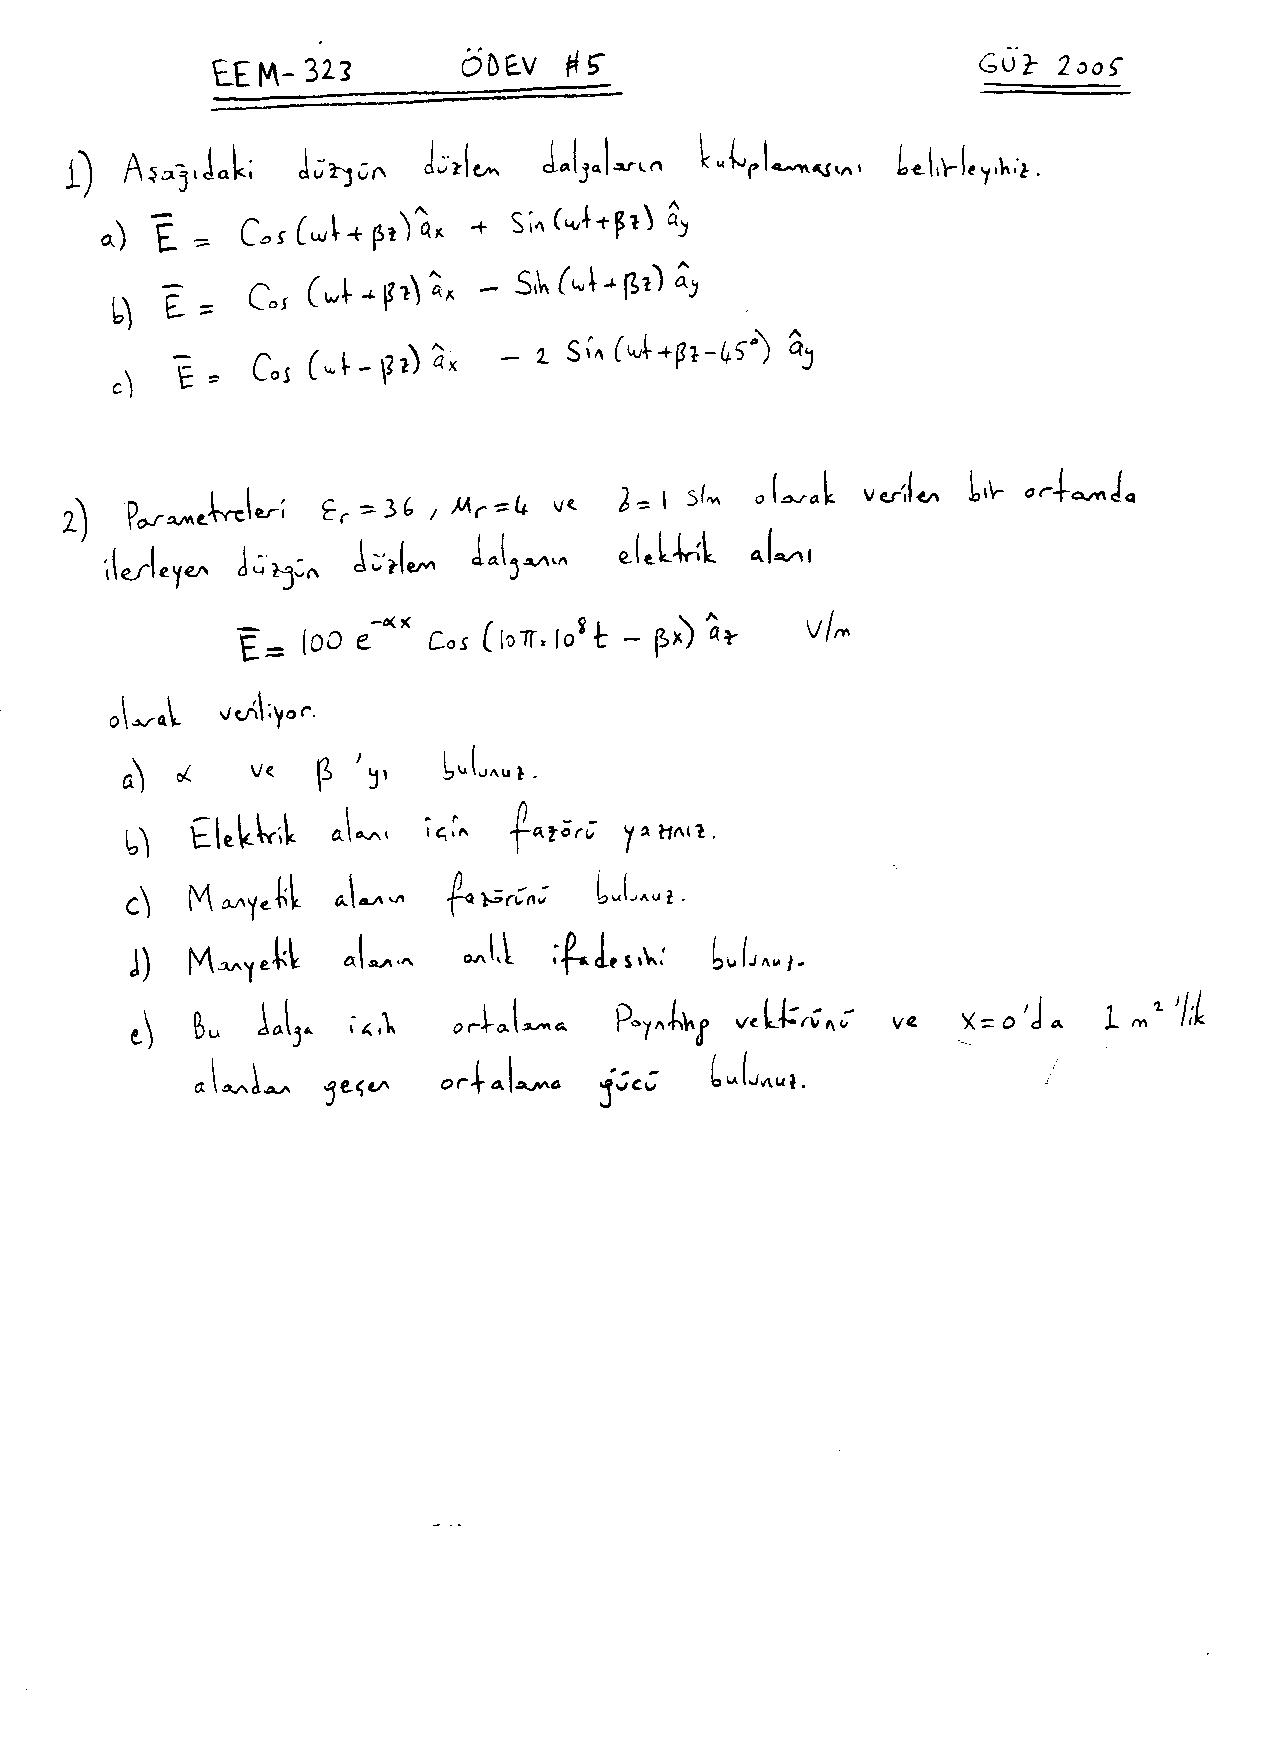 EEM-323 ÖDEV #5 GÜZ 2005
1) Aşağıdaki düzgün düzlem dalgaların kutuplamasını belirleyiniz.
a) E̅ = Cos(ωt+βz) âx + Sin(ωt+βz) ây
b) E̅ = Cos (ωt+βz) âx - Sin(ωt+βz) ây
c) E̅ = Cos (ωt-βz) âx - 2 Sin(ωt+βz-45°) ây
2) Parametreleri εr=36, μr=4 ve δ=1 S/m olarak verilen bir ortamda
ilerleyen düzgün düzlem dalganın elektrik alanı
E̅ = 100 e^-αx Cos (10π.10^8 t - βx) âz V/m
olarak veriliyor.
a) α ve β 'yı bulunuz.
b) Elektrik alanı için fazörü yazınız.
c) Manyetik alanın fazörünü bulunuz.
d) Manyetik alanın anlık ifadesini bulunuz.
e) Bu dalga için ortalama Poynting vektörünü ve x=0'da 1 m²'lik
alandan geçen ortalama gücü bulunuz.